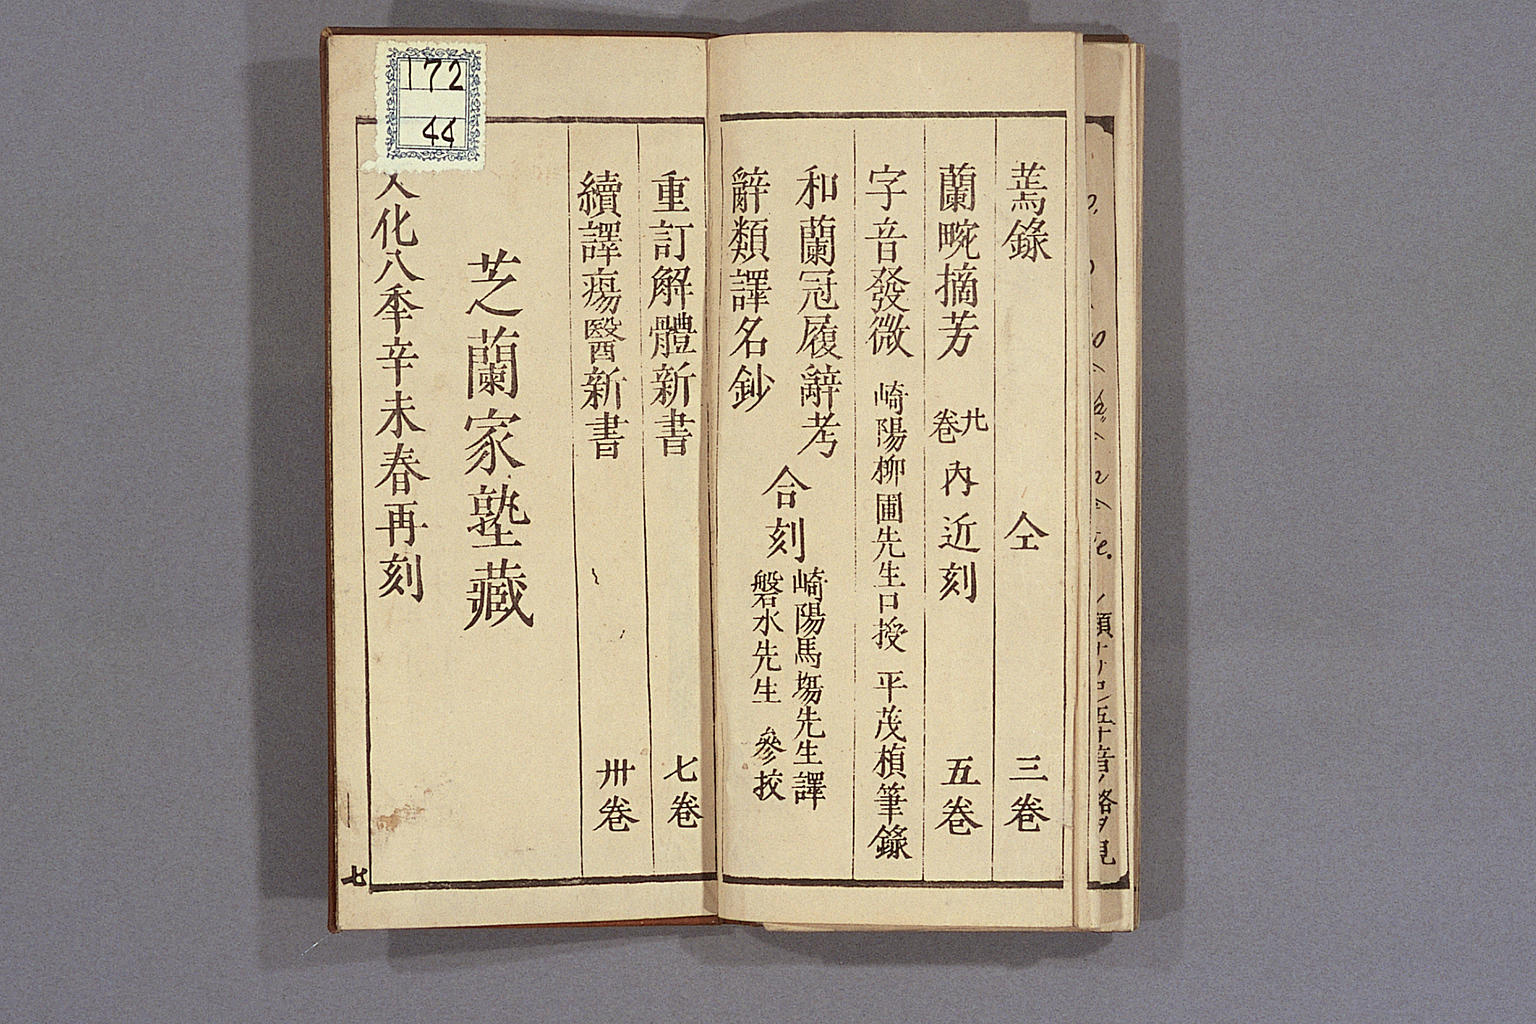 蔫錄 仝 三卷
蘭畹摘芳 九卷内近刻 五卷
字音發微 崎陽柳圃先生口授 平茂楨筆錄
和蘭冠履辭考
辭類譯名鈔
合刻
崎陽馬塲先生譯
磐水先生 參挍
重訂解體新書 七卷
續譯瘍醫新書 卅卷
芝蘭家塾藏
文化八年辛未春再刻
七
172
44